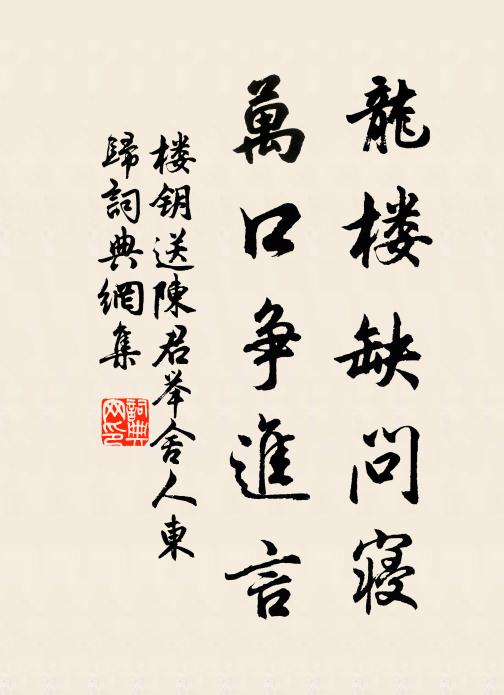 龍楼缺問寝
萬口争進言
楼钥送陳君举舍人東
歸詞典網集
詞典
网印